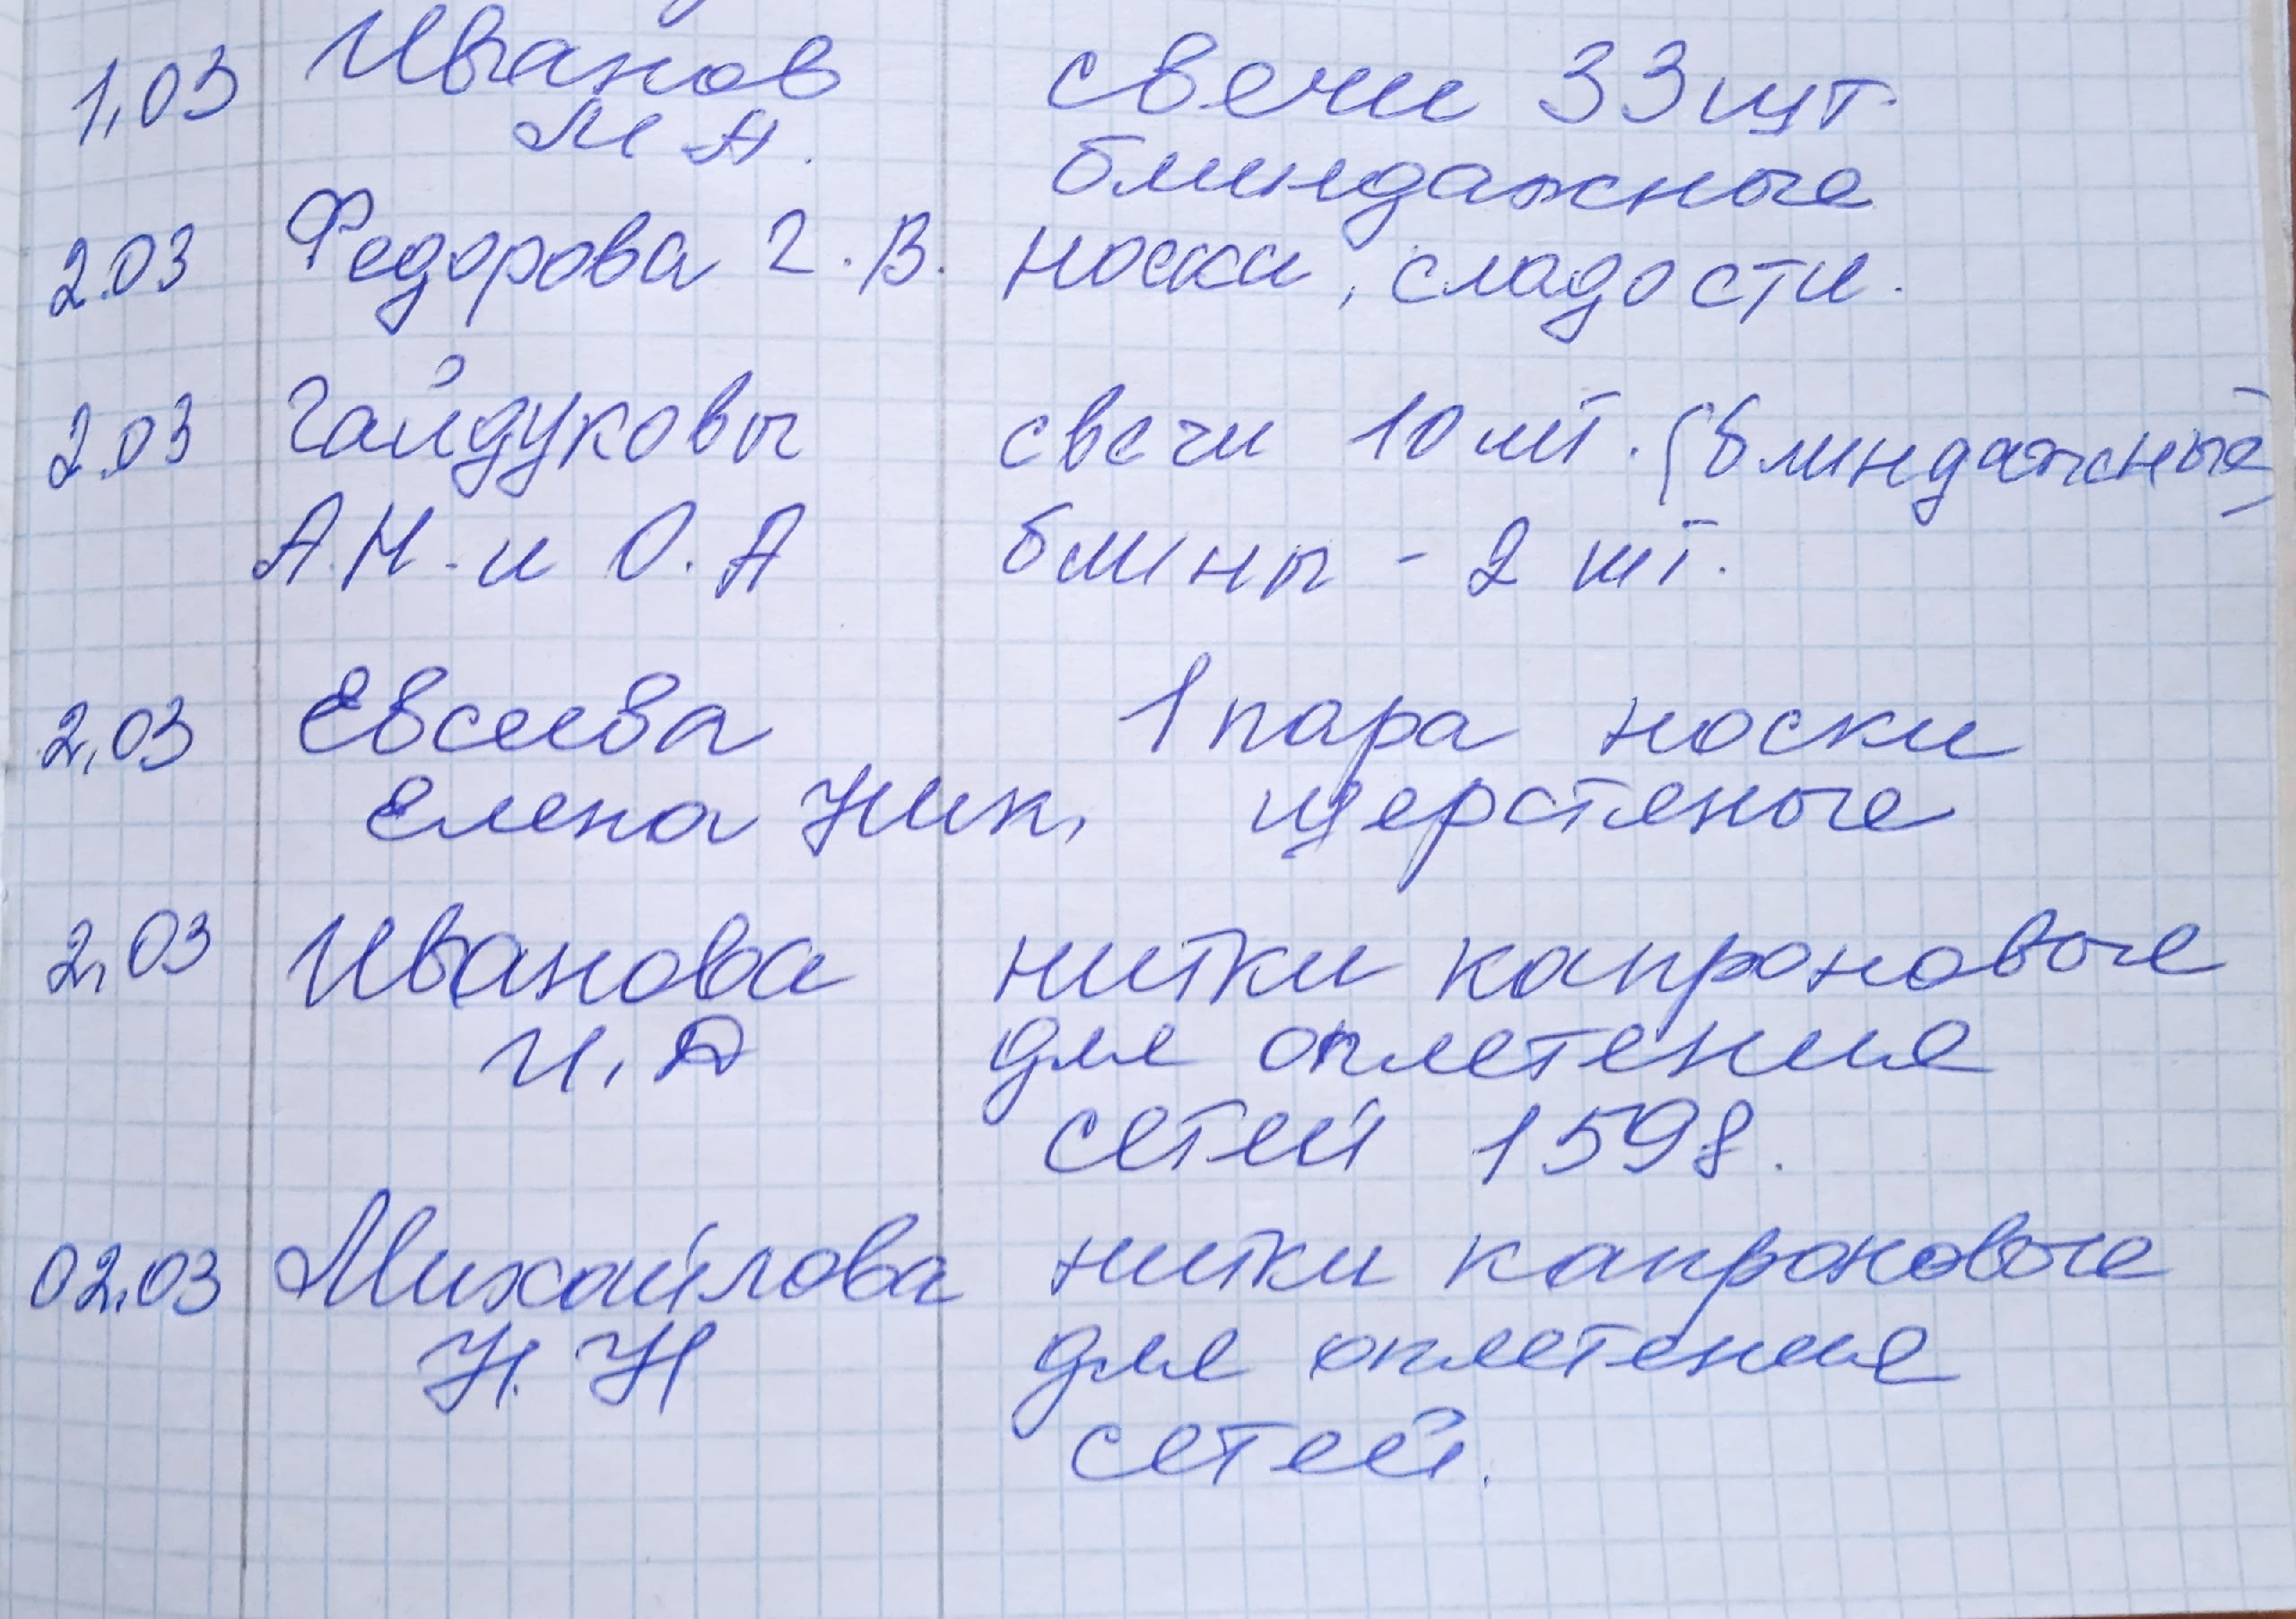 1.03 Иванов свечи 33 шт.
М А. блиндажные
2.03 Федорова Г. В. носки, сладости.
2.03 Гайдуковы свечи 10 шт. (блиндажные)
А.Н. и О.А блины - 2 шт.
2.03 Евсеева 1 пара носки
Елена Ник. шерстяные
2.03 Иванова нитки капроновые
И. А для оплетения
сетей 1598.
02.03 Михайлова нитки капроновые
Н. Н для оплетения
сетей.